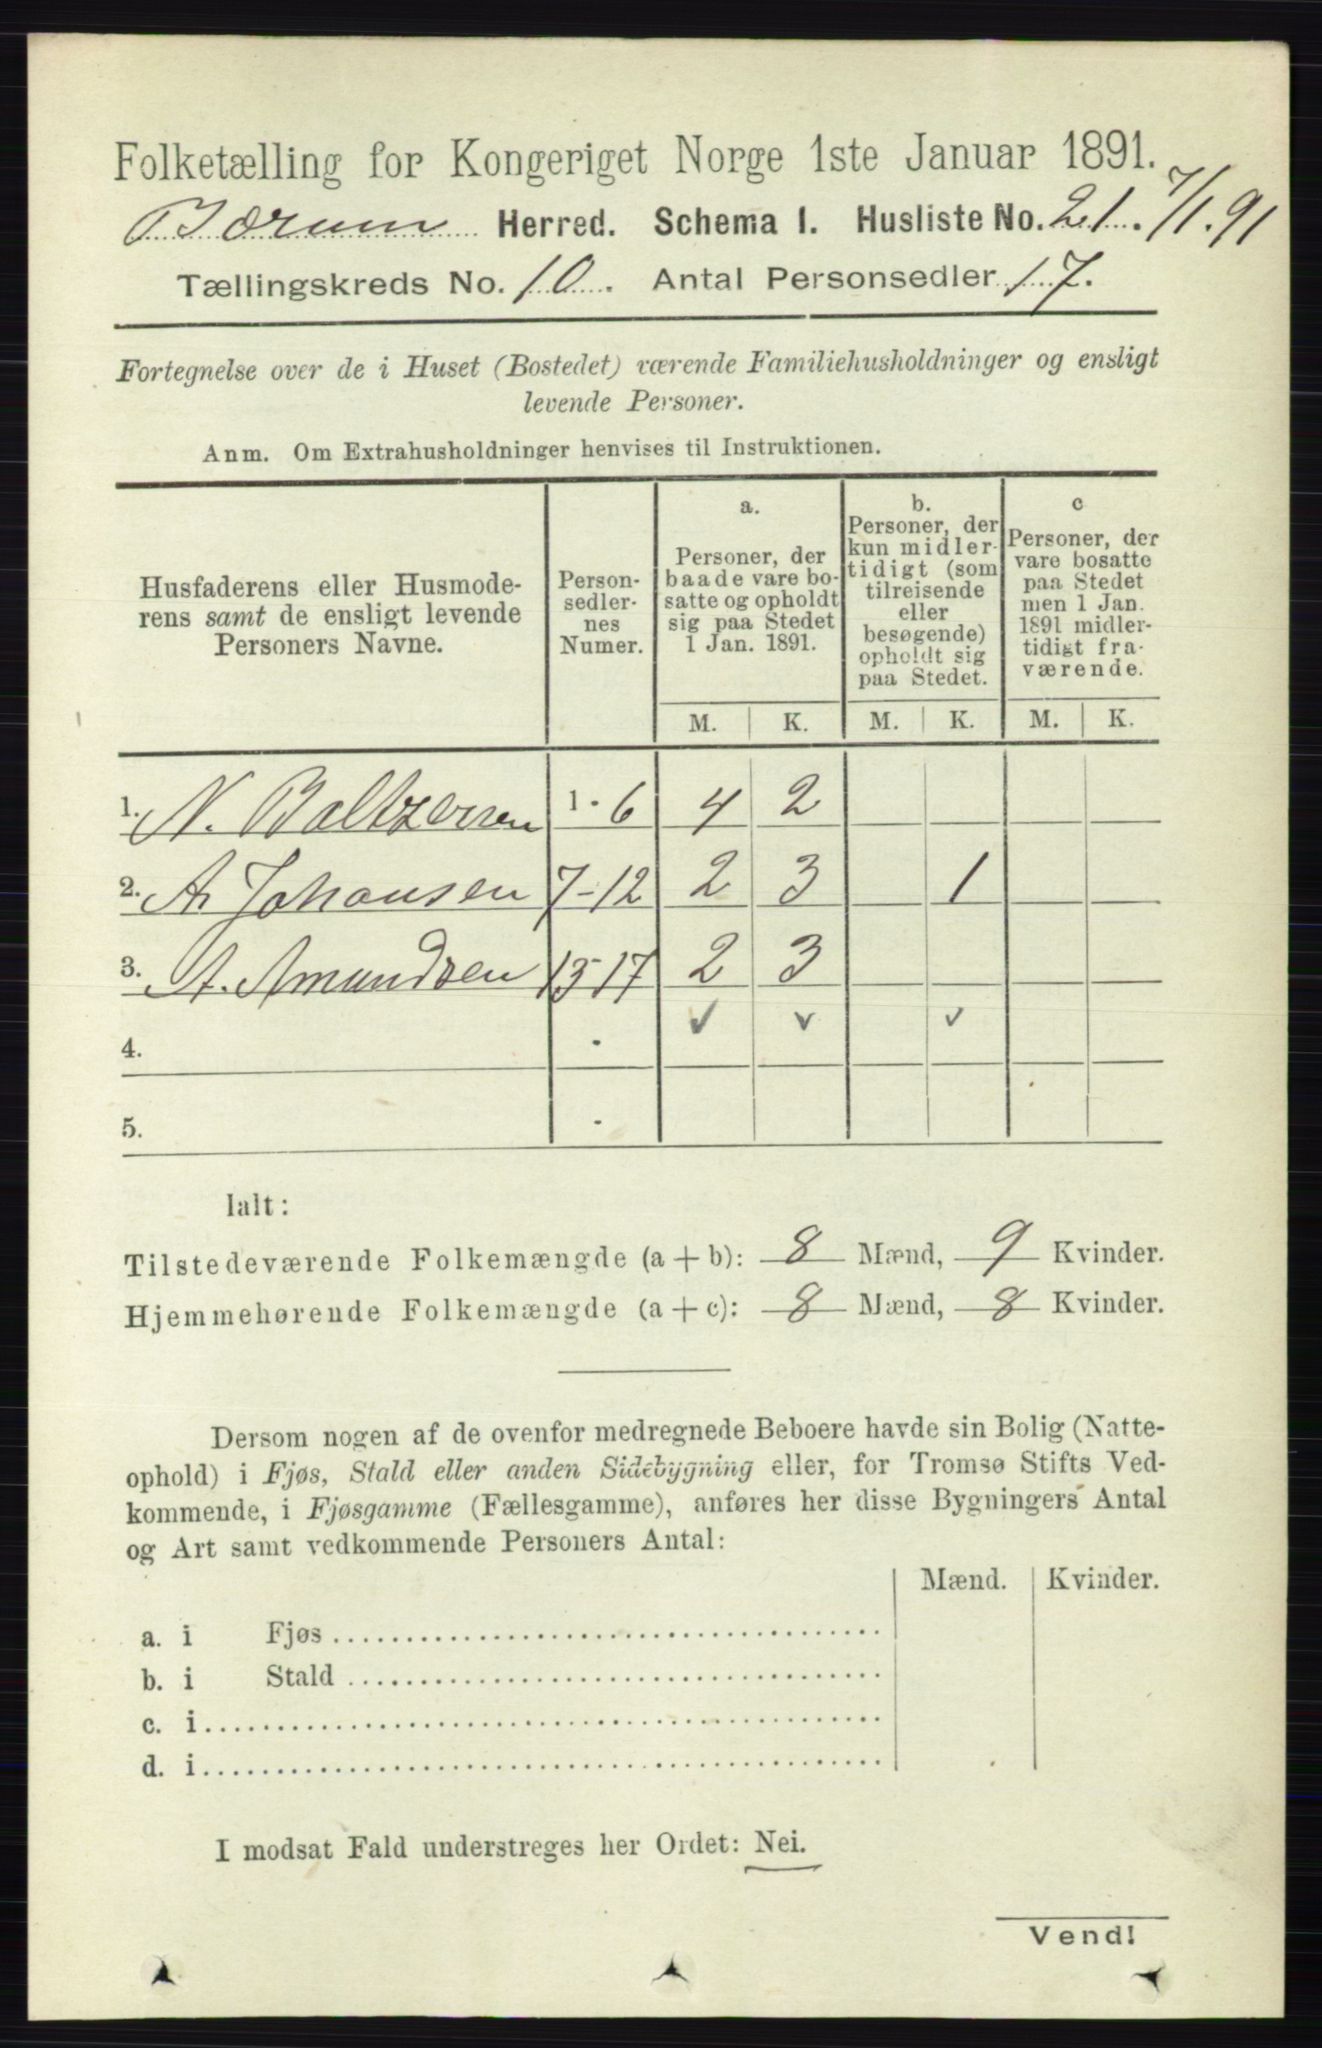 Folketælling for Kongeriget Norge 1ste Januar 1891.
Bærum Herred. Schema I. Husliste No. 21. 7/1.91
Tællingskreds No. 10. Antal Personsedler 17.
Fortegnelse over de i Huset (Bostedet) værende Familiehusholdninger og ensligt
levende Personer.
Anm. Om Extrahusholdninger henvises til Instruktionen.
Husfaderens eller Husmode-
rens samt de ensligt levende
Personers Navne.
Person-
sedler-
nes
Numer.
a.
Personer, der
baade vare bo-
satte og opholdt
sig paa Stedet
1 Jan. 1891.
b.
Personer, der
kun midler-
tidigt (som
tilreisende
eller
besøgende)
opholdt sig
paa Stedet.
c
Personer, der
vare bosatte
paa Stedet
men 1 Jan.
1891 midler-
tidigt fra-
værende.
M. K. M. K. M. K.
1. N. Baltzersen 1-6 4 2
2. A. Johansen 7-12 2 3 1
3. A. Amundsen 13-17 2 3
4.
5.
Ialt:
Tilstedeværende Folkemængde (a + b): 8 Mænd, 9 Kvinder.
Hjemmehørende Folkemængde (a + c): 8 Mænd, 8 Kvinder.
Dersom nogen af de ovenfor medregnede Beboere havde sin Bolig (Natte-
ophold) i Fjøs, Stald eller anden Sidebygning eller, for Tromsø Stifts Ved-
kommende, i Fjøsgamme (Fællesgamme), anføres her disse Bygningers Antal
og Art samt vedkommende Personers Antal:
Mænd. Kvinder.
a. i Fjøs
b. i Stald
c. i
d. i
I modsat Fald understreges her Ordet: Nei.
Vend!